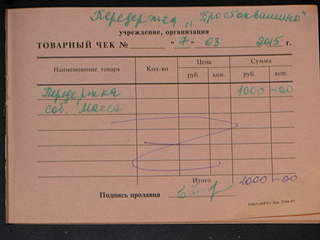 Передержка „Простоквашино"
учреждение, организация
ТОВАРНЫЙ ЧЕК № 7 - 03 2015 г.
Наименование товара Кол-во Цена Сумма
руб. коп. руб. коп.
Передержка 1000 -00
соб. Макса
Итого 1000 -00
Подпись продавца